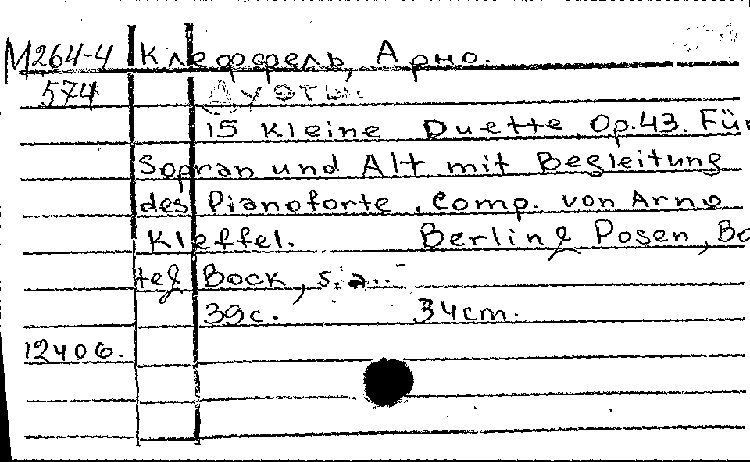 М264-4 Клеффель, Арно.
574 Дуэты.
15 kleine Duette, Op.43. Für
Sopran und Alt mit Begleitung
des Pianoforte, Comp. von Arno
Kleffel. Berlin & Posen, Bo
te & Bock, s.a.
39с. 34cm.
12406.